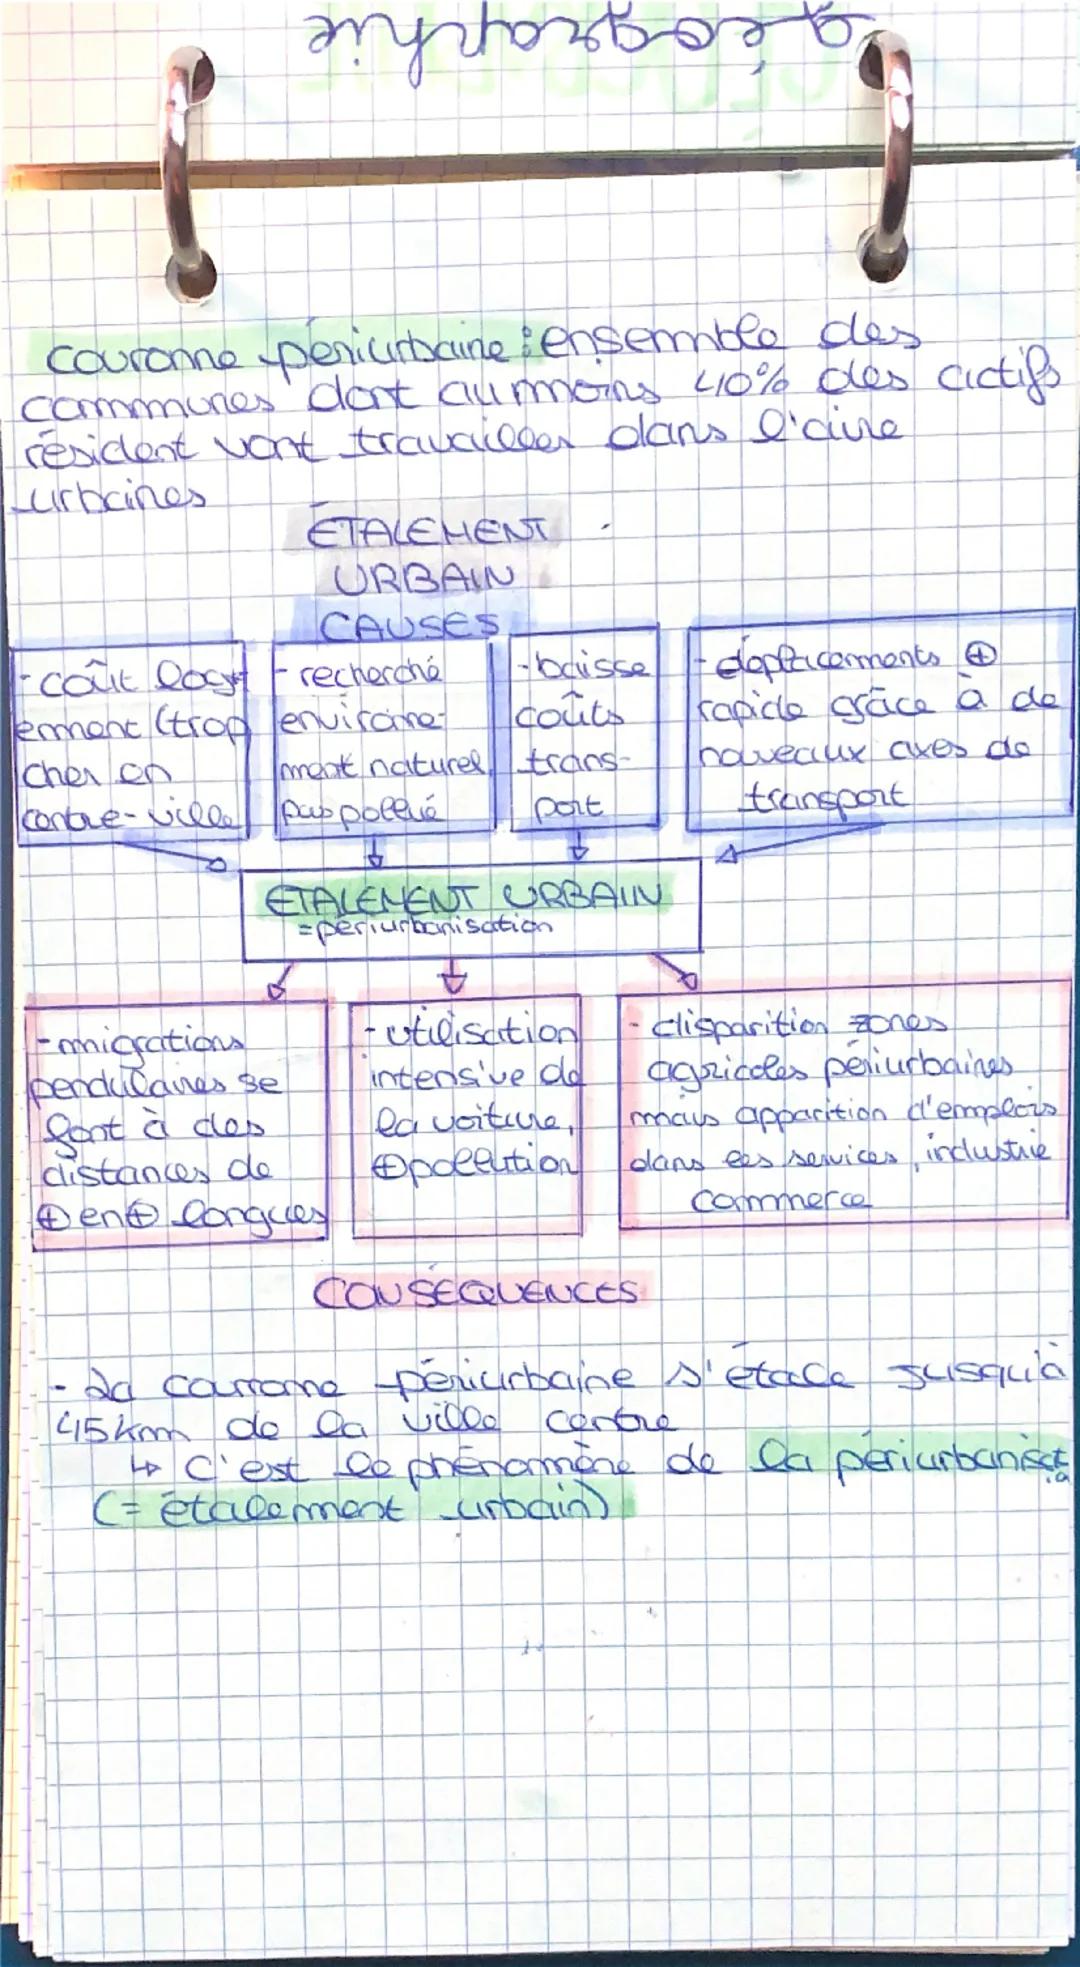 géographie
couronne périurbaine : ensemble des
communes dont au moins 40% des actifs
résident vont travailler dans l'aire
urbaines
ÉTALEMENT
URBAIN
CAUSES
- coût log
ement (trop
cher en
centre-ville
- recherche
environne-
ment naturel,
pas pollué
- baisse
coûts
trans-
port
- déplacements ⊕
rapide grâce à de
nouveaux axes de
transport
ETALEMENT URBAIN
= périurbanisation
- migrations
pendulaires se
font à des
distances de
⊕ en ⊕ longues
- utilisation
intensive de
la voiture,
⊕ pollution
- disparition zones
agricoles périurbaines
mais apparition d'emplois
dans les services, industrie
commerce
CONSÉQUENCES
- La couronne périurbaine s'étale jusqu'à
45 km de la ville centre
↳ C'est le phénomène de la périurbanisat
(= étalement urbain)